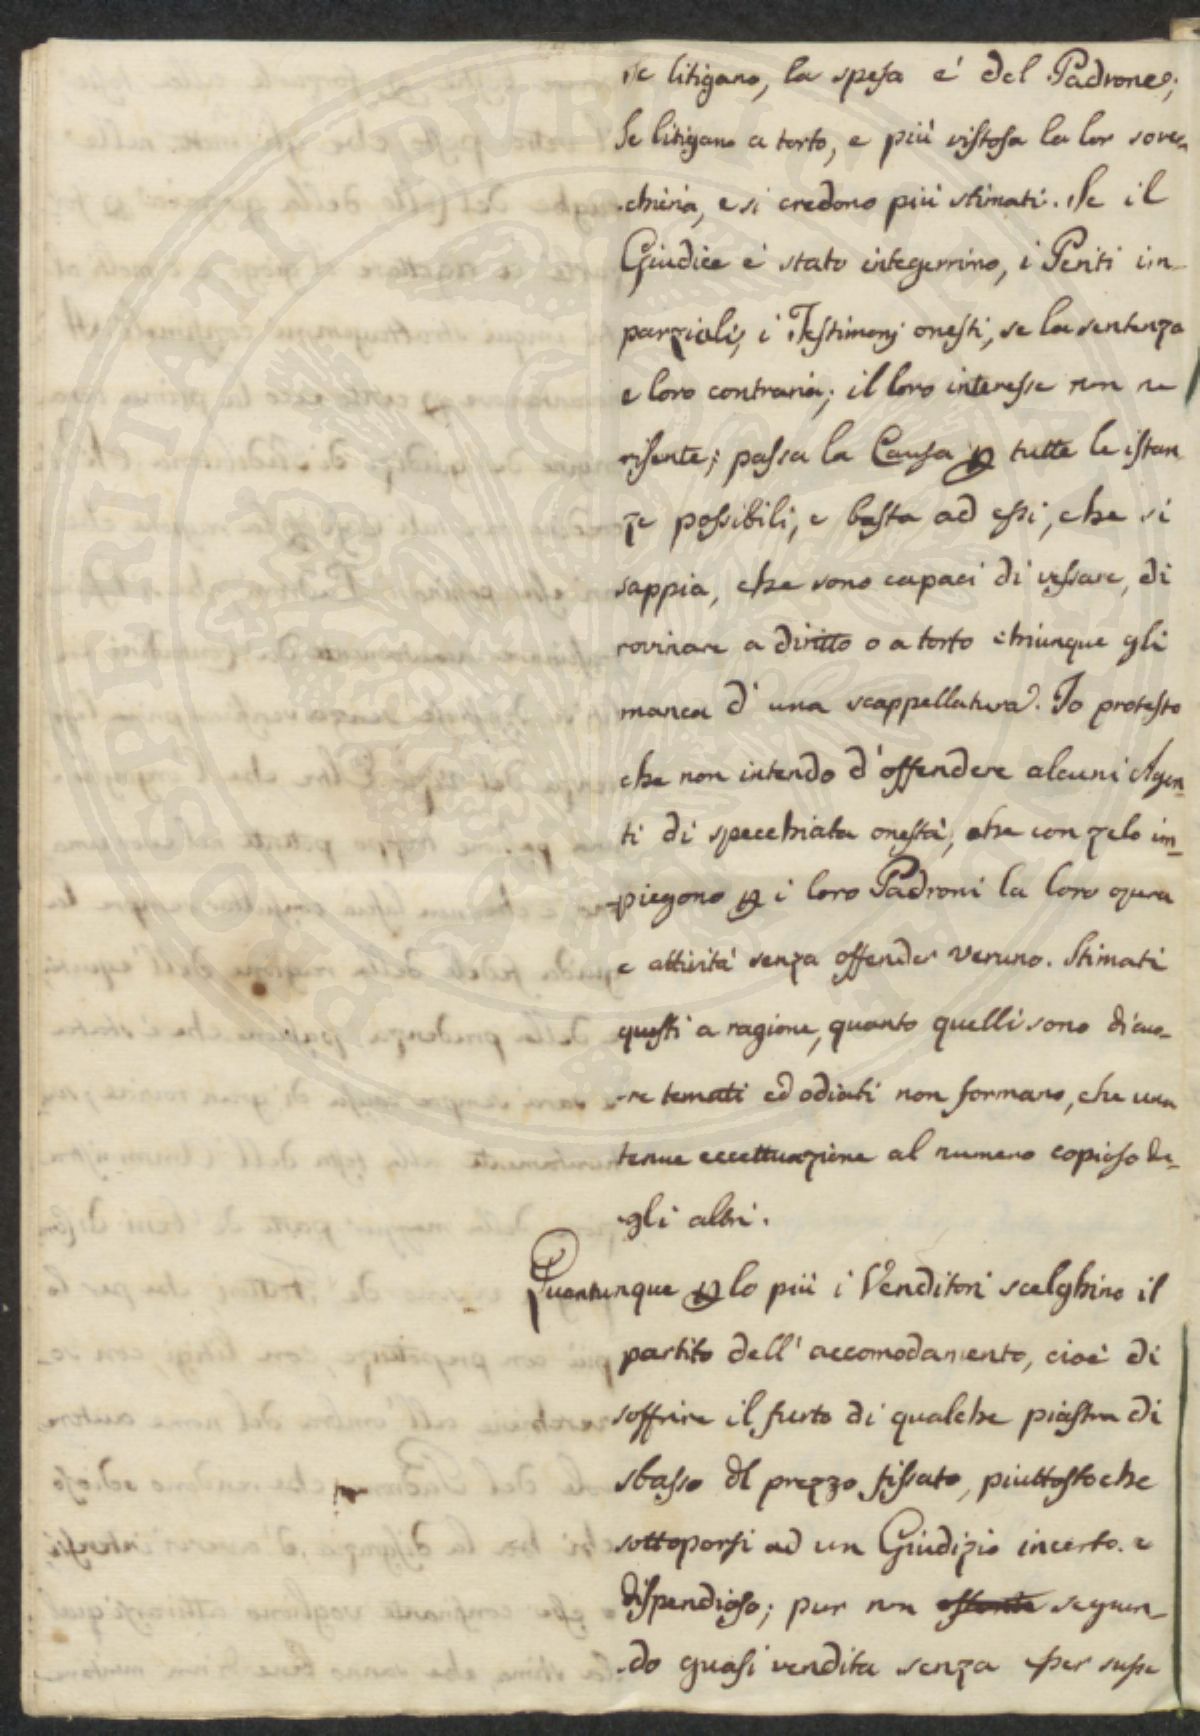 se litigano, la spesa e' del Padrone;
Se litigano a torto, e più vistosa la lor sover-
-chieria, e si credono più stimati. Se il
Giudice e' stato integerrimo, i Periti im-
parziali, i Testimonj onesti, se la sentenza
e loro contraria; il loro interesse non ne
risente; passa la Causa p tutte le istan
ze possibili, e basta ad essi, che si
sappia, che sono capaci di vessare, di
rovinare a diritto o a torto chiunque gli
manca d' una scappellatura. Io protesto
che non intendo d'offendere alcuni Agen-
ti di specchiata onestà, che con zelo im-
-piegono p i loro Padroni la loro opera
e attività senza offender veruno. Stimati
questi a ragione, quanto quelli sono di cuo-
-re temuti ed odiati non formano, che una
tenue eccettuazione al numero copioso de-
-gli altri.
Quantunque p lo più i Venditori scelghino il
partito dell' accomodamento, cioè di
soffrire il furto di qualche piastra di
sbasso dl prezzo fissato, piuttostoche
sottoporsi ad un Giudizio incerto e
dispendioso; pur non ostante seguen-
-do quasi vendita senza esser supe
PROSPERITATI PVBLICAE